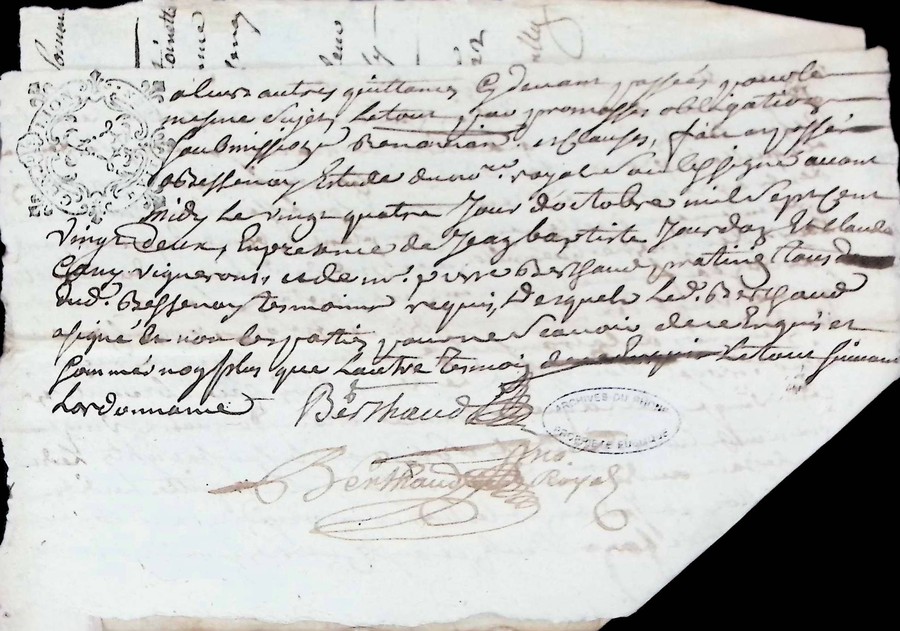 aleurs autres quittances Cy devant passées pour le
mesme Sujet, Letout par promesses obligations
Soubmissions Renontiaons et Clauses, fait et passé
a Bessenay Estude du nore royal Soubssigné avant
Midy Le vingt quatre Jour d'octobre mil Sept Cent
Vingt deux, En presence de Jean baptiste Jourdan Et Claude
vignerons, et de mr. pierre Berthaud praticien tous
dud. Bessenay tesmoins requis, Lesquels Led. Berthaud
a signé et non les parties pour ne Scavoir de ce Enquis et
Sommés non plus que Lautre tesmoin de ce Enquis Letout Suivant
Lordonnance Berthaud
ARCHIVES DU RHONE
PROPRIETE PUBLIQUE
Berthaud no
Royal